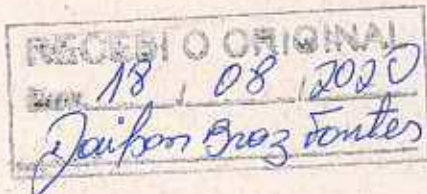 RECEBI O ORIGINAL
Em, 18 / 08 / 2020
Braz Fontes